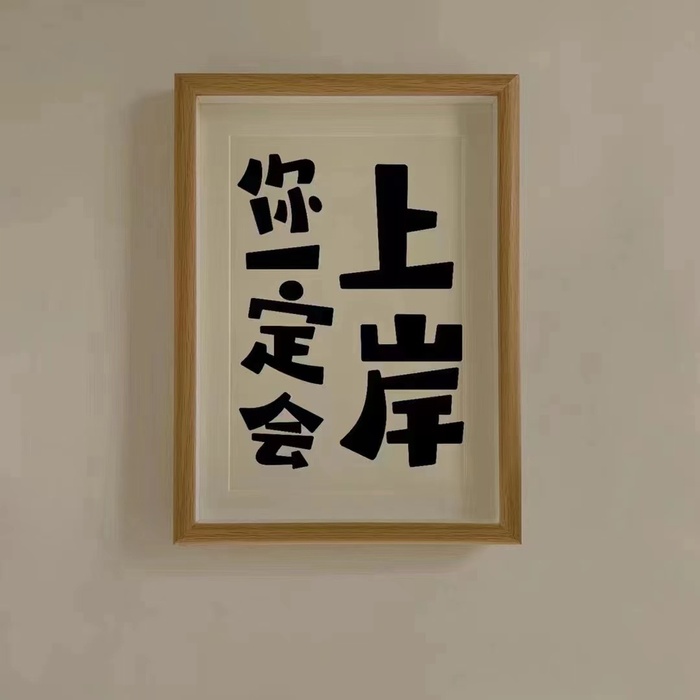 你一定会
上岸